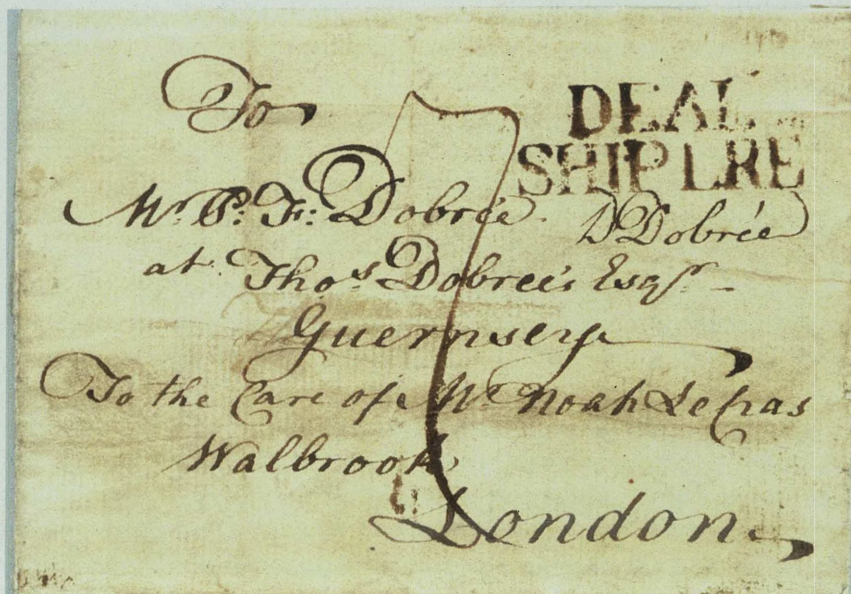 To
DEAL
SHIP LRE
Mr. P: F: Dobrée. D Dobrée
at Thos. Dobreés Esqr.
Guernsey
To the Care of Mr. Noah LeCras
Walbrook
London.